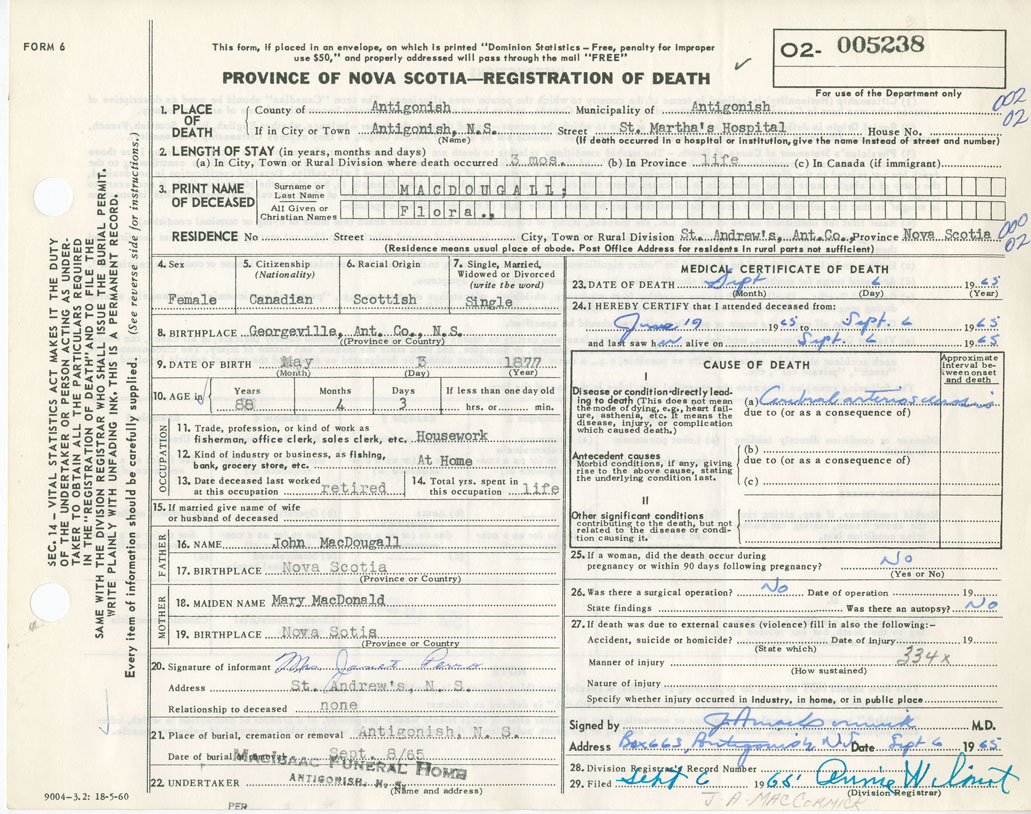 FORM 6
This form, if placed in an envelope, on which is printed "Dominion Statistics – Free, penalty for improper
use $50," and properly addressed will pass through the mail "FREE"
PROVINCE OF NOVA SCOTIA—REGISTRATION OF DEATH
02- 005238
For use of the Department only
002
02
1. PLACE OF DEATH
County of Antigonish Municipality of Antigonish
If in City or Town Antigonish, N.S. Street St. Martha's Hospital House No.
(Name) (If death occurred in a hospital or institution, give the name instead of street and number)
2. LENGTH OF STAY (in years, months and days)
(a) In City, Town or Rural Division where death occurred 3 mos. (b) In Province life (c) In Canada (if immigrant)
3. PRINT NAME OF DECEASED
Surname or Last Name MACDOUGALL;
All Given or Christian Names Flora.,
000
02
RESIDENCE No Street City, Town or Rural Division St. Andrew's, Ant.Co., Province Nova Scotia
(Residence means usual place of abode. Post Office Address for residents in rural parts not sufficient)
4. Sex
Female
5. Citizenship
(Nationality)
Canadian
6. Racial Origin
Scottish
7. Single, Married, Widowed or Divorced
(write the word)
Single
8. BIRTHPLACE Georgeville, Ant. Co., N.S.
((Province or Country)
9. DATE OF BIRTH May 3 1877
(Month) (Day) (Year)
10. AGE in
Years Months Days If less than one day old
88 4 3 hrs. or min.
OCCUPATION
11. Trade, profession, or kind of work as
fisherman, office clerk, sales clerk, etc. Housework
12. Kind of industry or business, as fishing,
bank, grocery store, etc. At Home
13. Date deceased last worked
at this occupation retired
14. Total yrs. spent in
this occupation life
15. If married give name of wife
or husband of deceased
FATHER
16. NAME John MacDougall
17. BIRTHPLACE Nova Scotia
(Province or Country)
MOTHER
18. MAIDEN NAME Mary MacDonald
19. BIRTHPLACE Nova Sotia
(Province or Country
20. Signature of informant Mrs Janet
Address St. Andrew's, N. S.
Relationship to deceased none
21. Place of burial, cremation or removal Antigonish, N. S.
Date of burial Sept. 8/65
MacIsaac Funeral Home
ANTIGONISH, N. S.
22. UNDERTAKER
(Name and address)
9004-3.2: 18-5-60
PER
MEDICAL CERTIFICATE OF DEATH
23. DATE OF DEATH Sept 6 1965
(Month) (Day) (Year)
24. I HEREBY CERTIFY that I attended deceased from:
June 19 1965 to Sept. 6 1965
and last saw her alive on Sept. 6 1965
CAUSE OF DEATH
Approximate interval between onset and death
I
Disease or condition directly lead-
ing to death (This does not mean
the mode of dying, e.g., heart fail-
ure, asthenia, etc. It means the
disease, injury, or complication
which caused death.)
(a) Cerebral arteriosclerosis
due to (or as a consequence of)
Antecedent causes
Morbid conditions, if any, giving
rise to the above cause, stating
the underlying condition last.
(b)
due to (or as a consequence of)
(c)
II
Other significant conditions
contributing to the death, but not
related to the disease or condi-
tion causing it.
25. If a woman, did the death occur during
pregnancy or within 90 days following pregnancy? No
(Yes or No)
26. Was there a surgical operation? No Date of operation 19
State findings Was there an autopsy? No
27. If death was due to external causes (violence) fill in also the following:–
Accident, suicide or homicide? Date of Injury 19
(State which)
Manner of injury 334x
(How sustained)
Nature of injury
Specify whether injury occurred in industry, in home, or in public place
Signed by J A MacCormick M.D.
Address Box 663, Antigonish NS Date Sept 6 1965
28. Division Registrar's Record Number
29. Filed Sept 6 1965 Annie W
(Division Registrar)
J. A. MACCORMICK
SEC. 14 – VITAL STATISTICS ACT MAKES IT THE DUTY
OF THE UNDERTAKER OR PERSON ACTING AS UNDER-
TAKER TO OBTAIN ALL THE PARTICULARS REQUIRED
IN THE "REGISTRATION OF DEATH" AND TO FILE THE
SAME WITH THE DIVISION REGISTRAR WHO SHALL ISSUE THE BURIAL PERMIT.
WRITE PLAINLY WITH UNFADING INK. THIS IS A PERMANENT RECORD.
Every item of information should be carefully supplied. (See reverse side for instructions.)